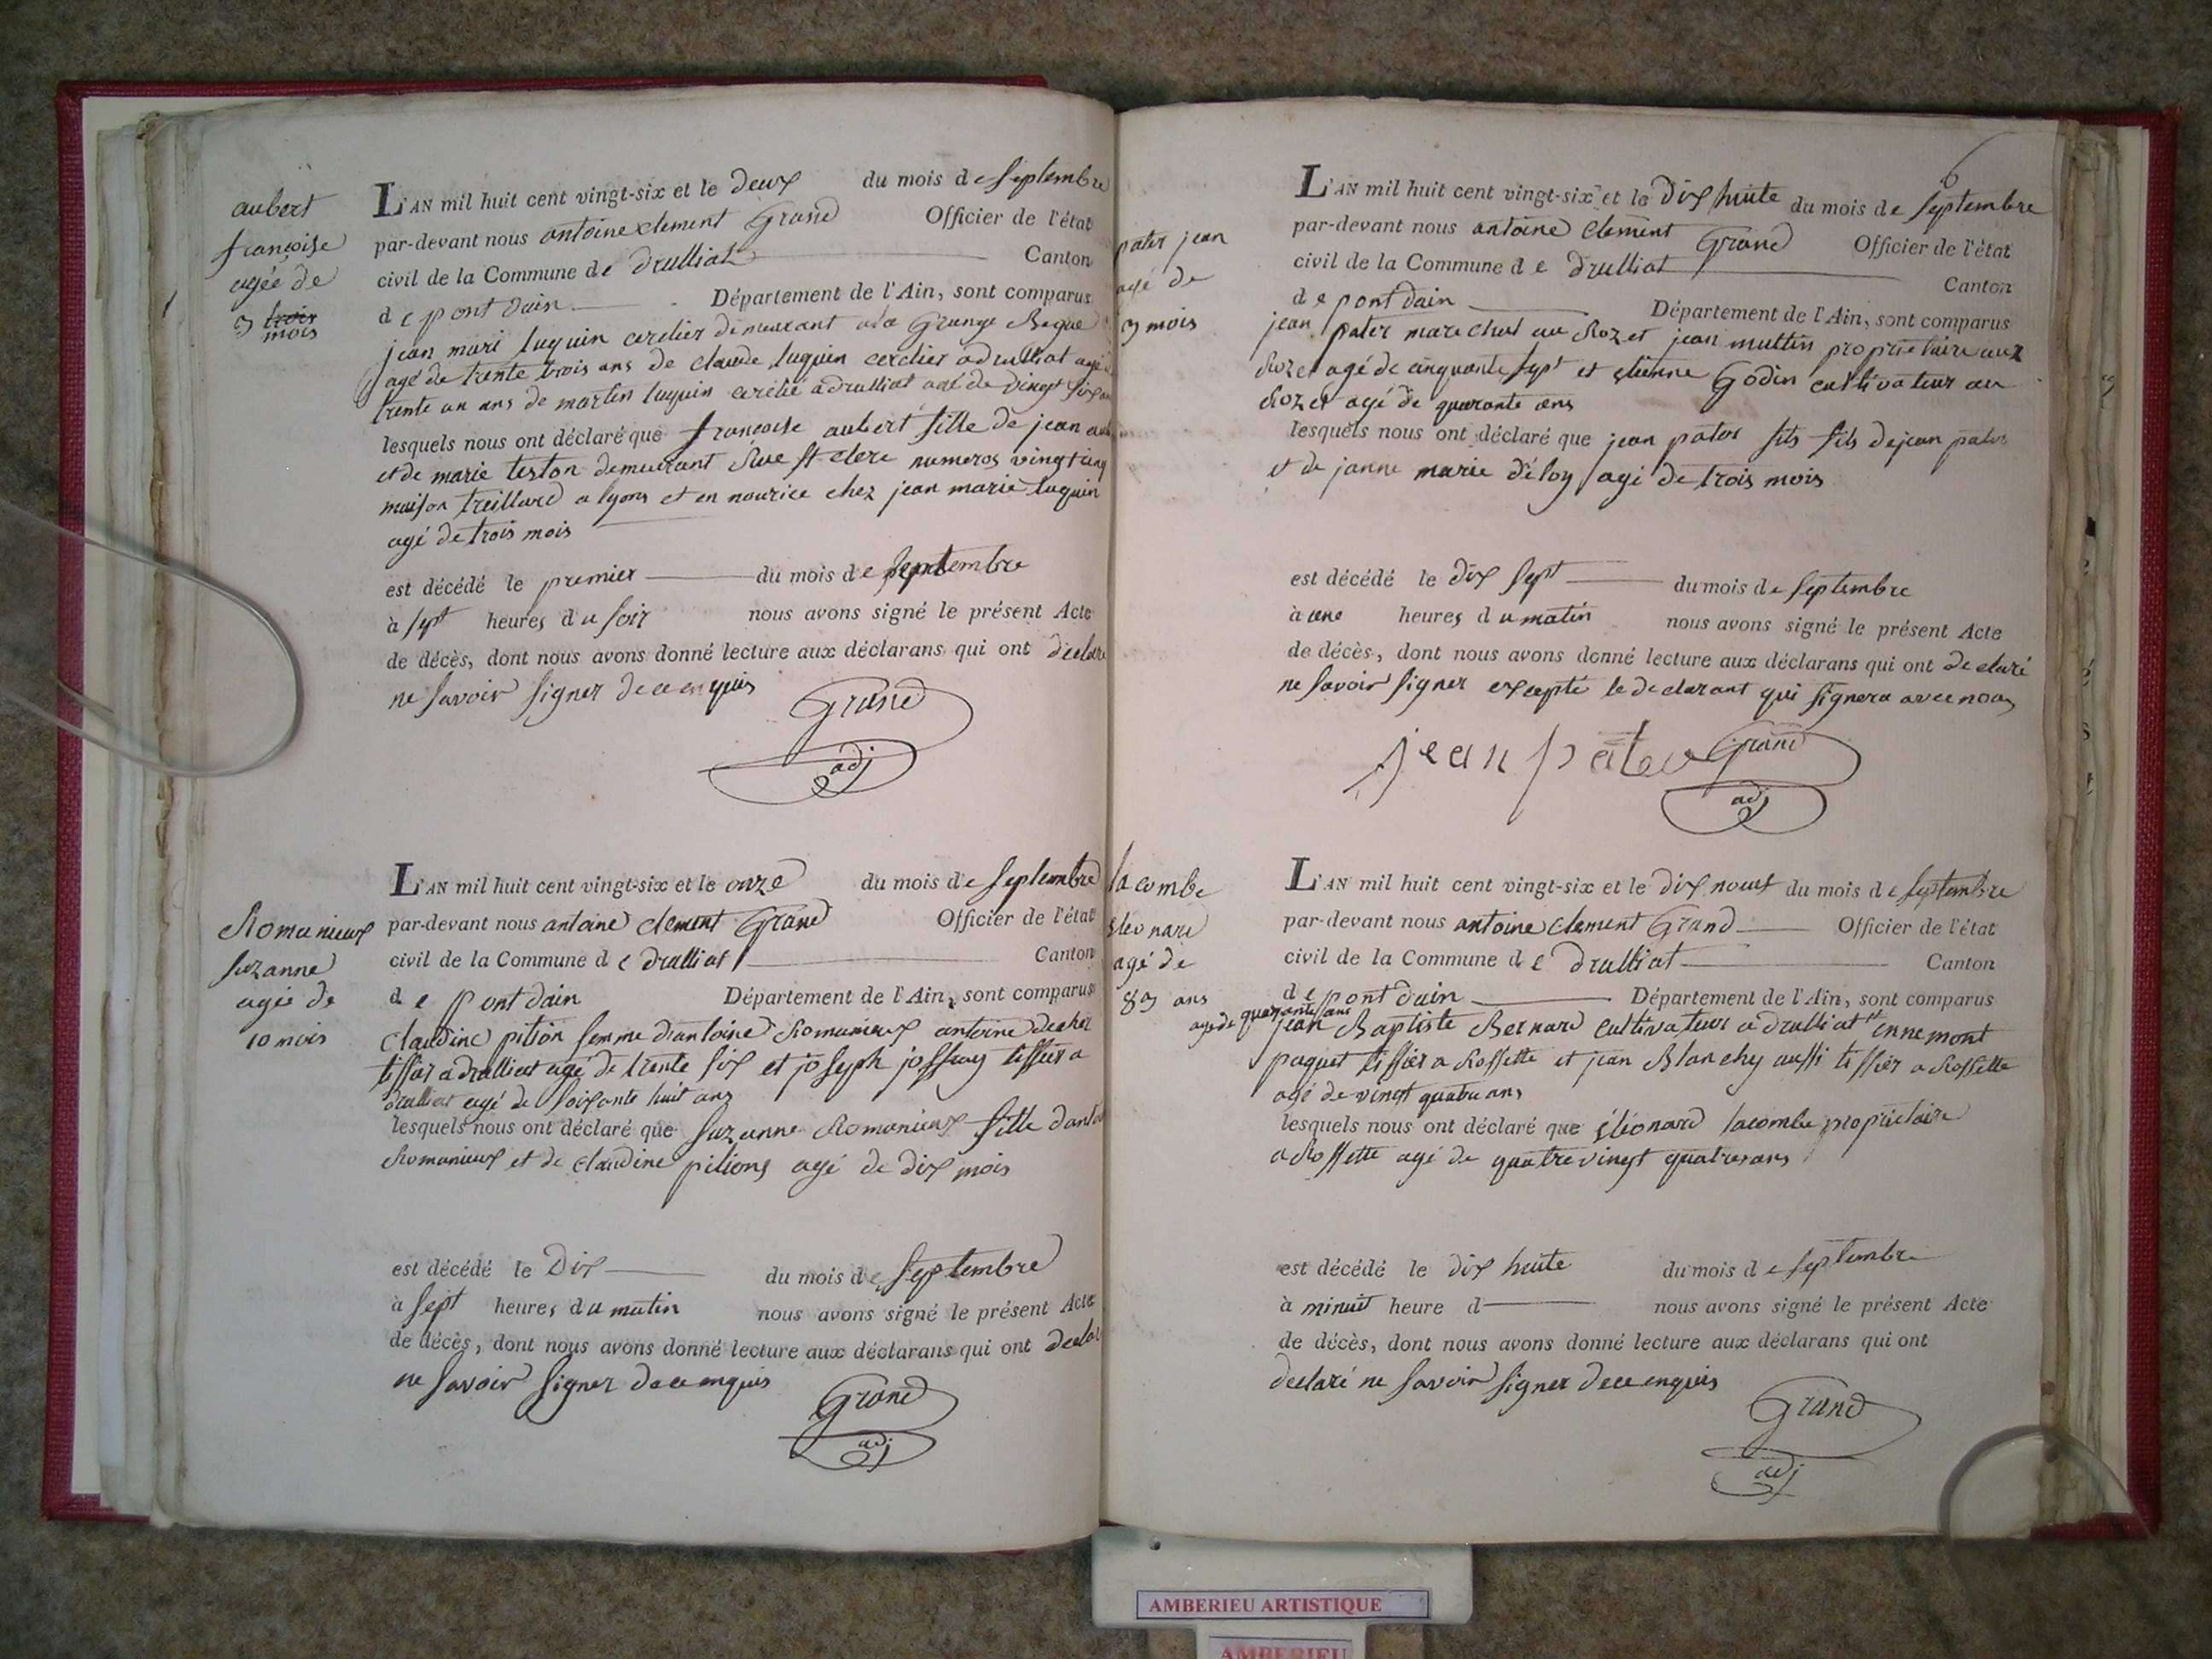 aubert
françoise
agée de
3 trois
mois
L'AN mil huit cent vingt-six et le deux du mois de septembre
par-devant nous antoine clement Grand Officier de l'état
civil de la Commune de druilliat Canton
de pont dain Département de l'Ain, sont comparus
jean mari luquin cerclier demeurant a la Grange
agé de trente trois ans de claude luquin cerclier a druilliat agé
trente un ans de martin luquin a druilliat agé de vingt six
lesquels nous ont déclaré que françoise aubert fille de jean
et de marie teston demeurant Rue st clere numeros vingt cinq
maison treillard a lyons et en nourice chez jean marie luquin
agé de trois mois
est décédé le premier du mois de septembre
à sept heures du soir nous avons signé le présent Acte
de décès, dont nous avons donné lecture aux déclarans qui ont
ne savoir signer de ce enquis
Grand
adj
Romanieux
suzanne
agée de
10 mois
L'AN mil huit cent vingt-six et le onze du mois de septembre
par-devant nous antoine clement Grand Officier de l'état
civil de la Commune de druilliat Canton
de pont dain Département de l'Ain, sont comparus
claudine pition femme d'antoine Romanieux antoine
tissier a druilliat agé de trente six et joseph tissier a
druilliat agé de soixante huit ans
lesquels nous ont déclaré que suzanne Romanieux fille
Romanieux et de claudine pitions agé de dix mois
est décédé le Dix du mois de septembre
à sept heures du matin nous avons signé le présent Acte
de décès, dont nous avons donné lecture aux déclarans qui ont
ne savoir signer de ce enquis
Grand
adj
6
pater jean
agé de
3 mois
L'AN mil huit cent vingt-six et le dix huite du mois de septembre
par-devant nous antoine clement Grand Officier de l'état
civil de la Commune de druilliat Canton
de pont dain Département de l'Ain, sont comparus
jean pater marechal au Rozet jean muttin proprietaire aux
Rozet agé de cinquante sept et etienne Godin cultivateur au
Rozet agé de quarante ans
lesquels nous ont déclaré que jean pater fils fils de jean pater
et de janne marie d'éloy agé de trois mois
est décédé le dix sept du mois de septembre
à une heures du matin nous avons signé le présent Acte
de décès, dont nous avons donné lecture aux déclarans qui ont declaré
ne savoir signer excepté le declarant qui signera avec nous
jean pater Grand
adj
lacombe
éléonard
agé de
83 ans
L'AN mil huit cent vingt-six et le dix noeuf du mois de septembre
par-devant nous antoine clement Grand Officier de l'état
civil de la Commune de druilliat Canton
de pont dain Département de l'Ain, sont comparus
agé de quarante ans
jean Baptiste Bernard cultivateur a druilliat st ennemont
paquet tissier a Rossette et jean Blanchy aussi tissier a Rossette
agé de vingt quatre ans
lesquels nous ont déclaré que éléonard lacombe proprietaire
a Rossette agé de quatre vingt quatres ans
est décédé le dix huite du mois de septembre
à minuit heure d nous avons signé le présent Acte
de décès, dont nous avons donné lecture aux déclarans qui ont
declaré ne savoir signer de ce enquis
Grand
adj
AMBERIEU ARTISTIQUE
AMBERIEU